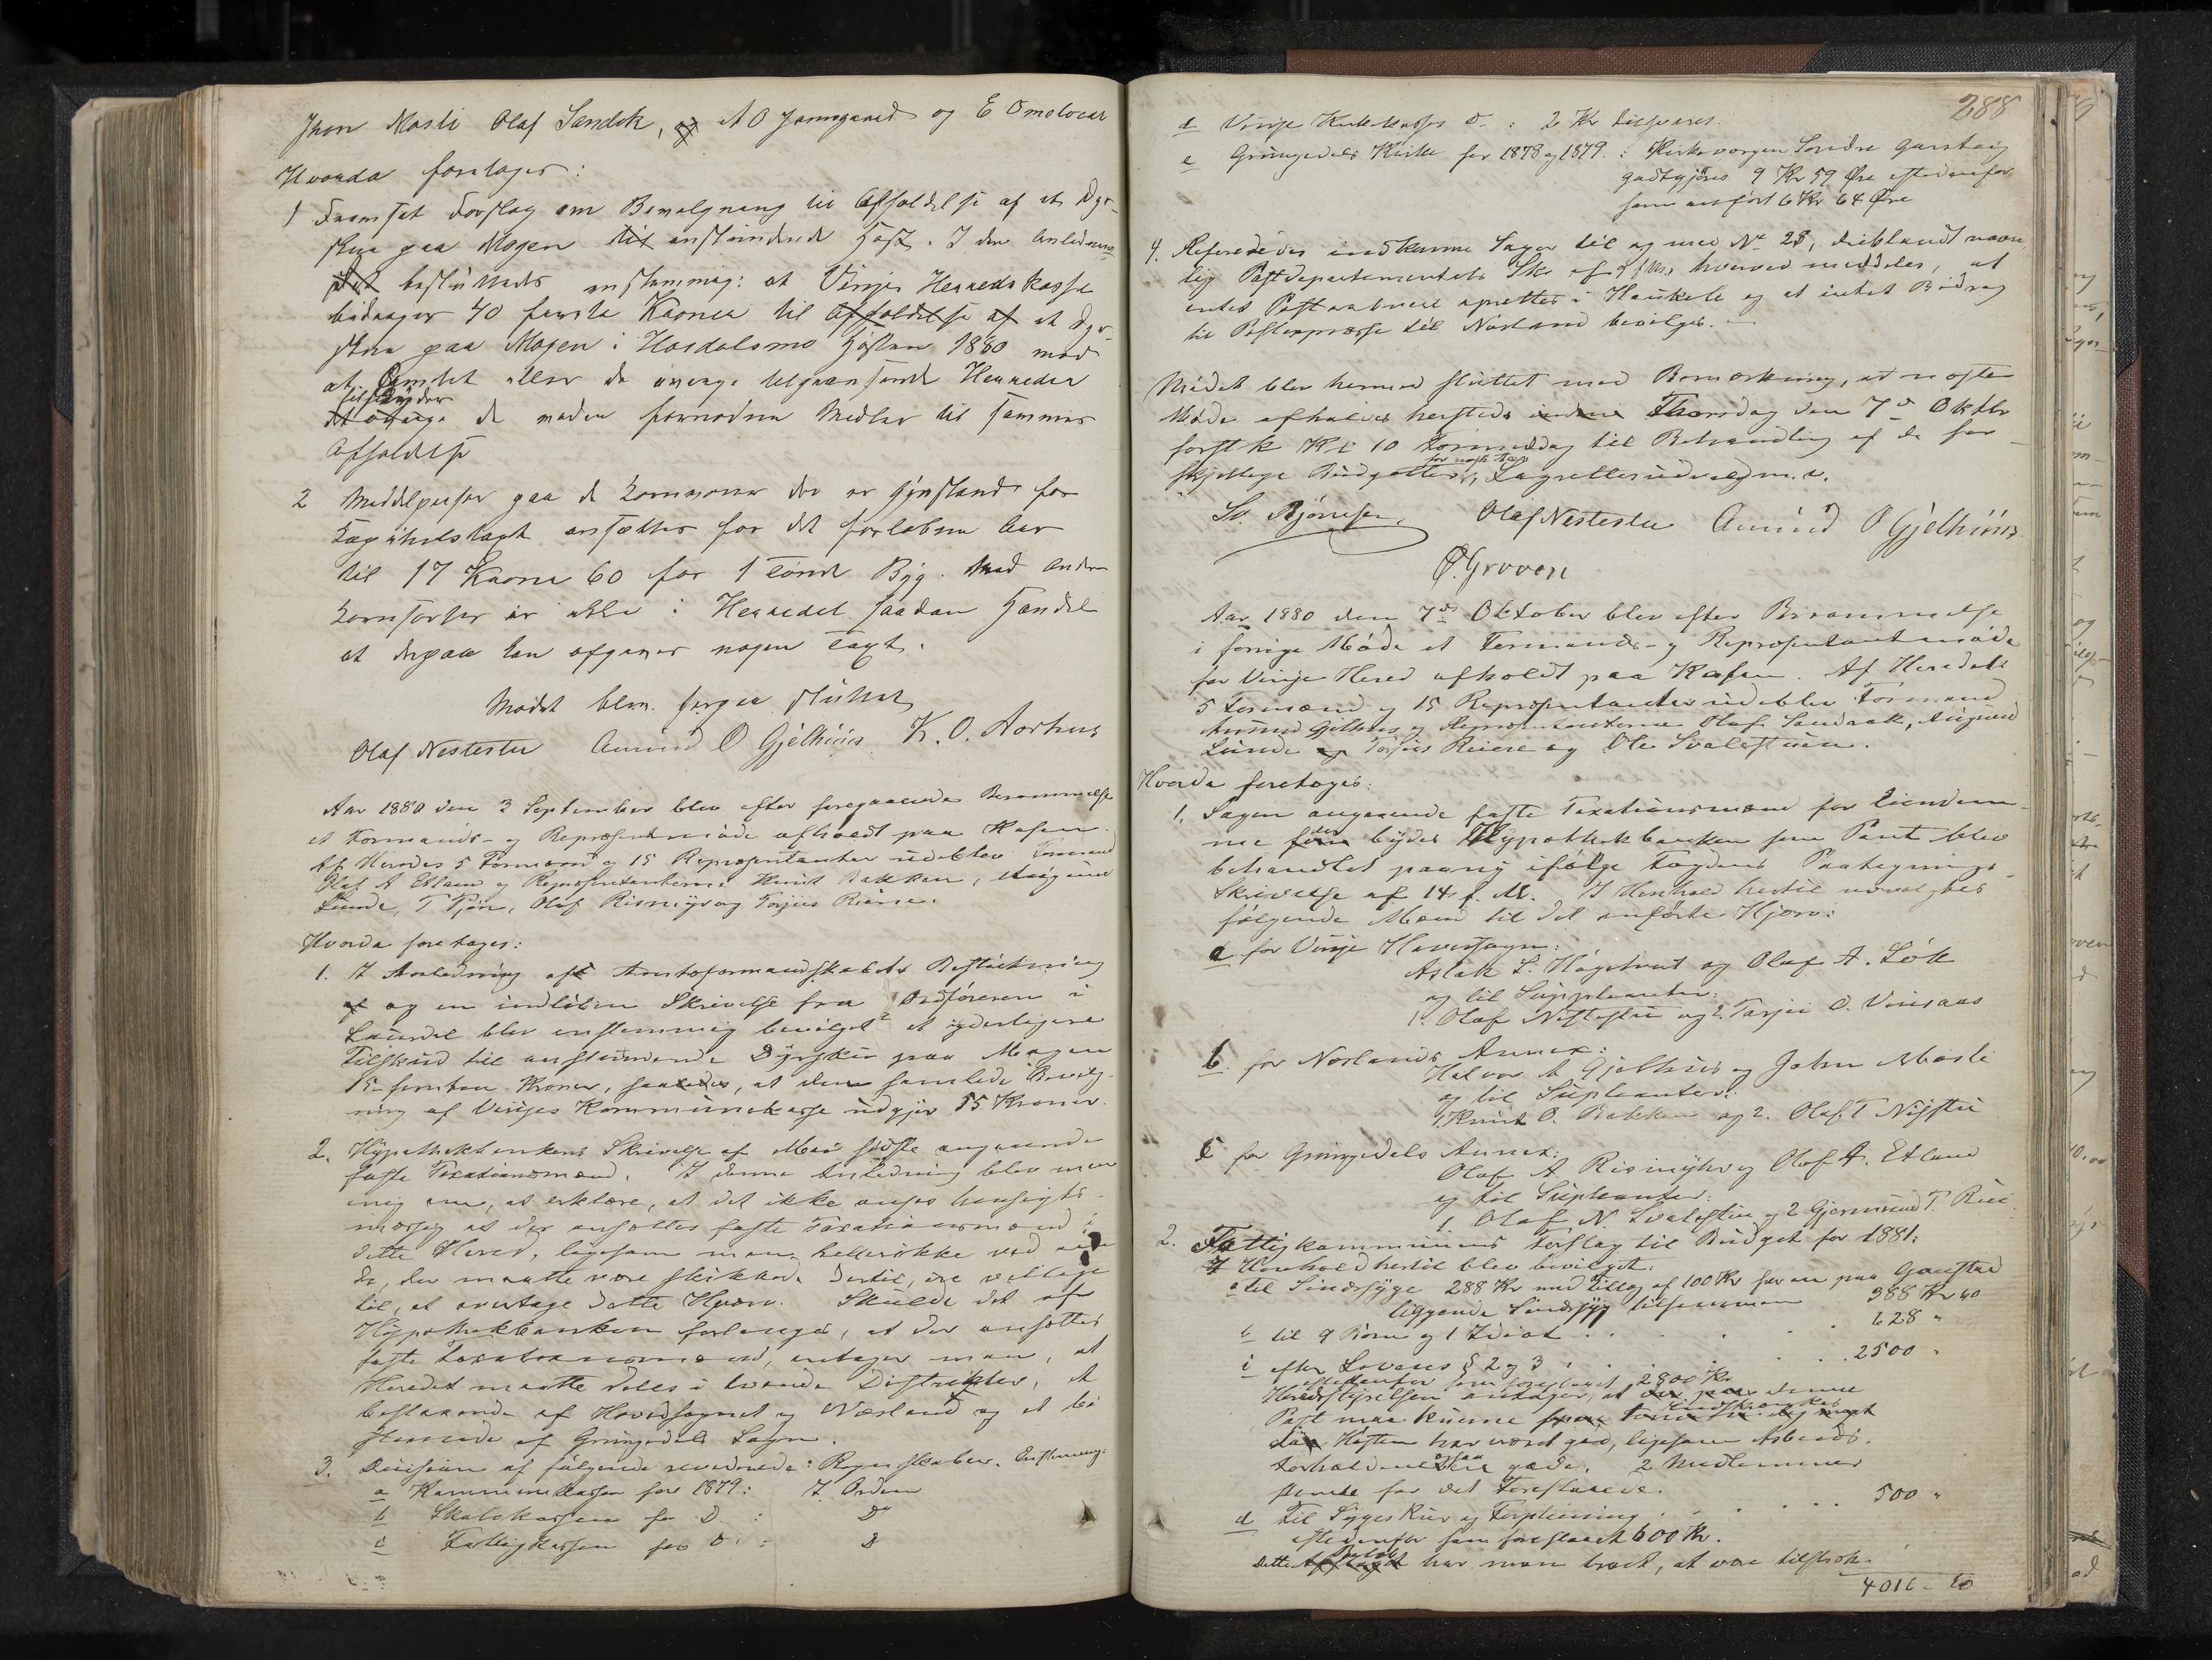 Jhon Mosli Olaf Sandok, og A O Jamsgaard og E Omslocar
Hvorda foretoges:
1 Fremsat Forslag om Bevilgning til Afholdelse af et Dyr-
skue paa Mogen til anstundende Høst. I den Anledning
Det besluttedes enstemmig: at Vinje Herredskasse
bidrager 40 førrti Kroner til Afholdelse af et Dyr-
skue paa Mogen i Høidalsmo Høsten 1880 mod
at Amtet eller de øvrige tilgrænsende Herreder
tilskyder
det øvrige de maden fornødne Midler til sammes
Afholdelse
2 Middelpriser paa de Kornvarer der er Gjenstand for
Kapitelstagt ansættes for det forløbne Aar
til 17 Kroner 60 for 1 Tønde Byg. Med andre
Kornsorter er ikke i Herredet saadan Handel
at derpaa kan afgives nogen Taxt.
Mødet blev derpaa sluttet
Olaf Nestestu Amund O Gjelhuus K. O. Aarhus
Aar 1880 den 3 September blev efter foregaaende Berammelse
et Formands- og Repræsentmøde afholdt paa Kosen.
Af Herredes 5 Formænd og 15 Repræsentanter udeblev Formand
Olaf A Edland og Repræsentanterne Knut Bakken, Augund
Lunde, T Tjøn, Olaf Rismyr og Torjus Riine.
Hvorda foretoges:
1. I Anledning af Amtsformandskabets Beslutning
af og en indløben Skrivelse fra Ordføreren i
Laurdal blev enstemmig bevilget et yderligere
Tilskud til anstundende Dyrskue paa Mogen
15 femten Kroner, saaledes, at den samlede Bevilg-
ning af Vinjes Kommunekasse udgjør 55 Kroner.
2. Hypothekbankens Skrivelse af Mai sidste angaaende
faste Taxationsmænd. I denne Anledning blev man
enig om, at erklære, at det ikke anses hensigts-
mæssig at der ansættes faste Taxationsmænd i
dette Herred, ligesom man heller ikke ved
de, der maatte være skikkede dertil, ere villige
til, at overtage dette Hverv. Skulde det af
Hypothekbanken forlanges, at der ansættes
faste Taxationsmænd, antager man, at
Heredet maatte deles i tvende Distrikter, et
bestaaende af Hovedsognet og Nesland og et be
staaende af Grungedals Sogn.
3. Decision af følgende reviderede Regnskaber. Enstemmig:
a Kommunekassen for 1879: I Orden
b Skolekassen for D : Do
c Fattigkassen for D : D
288
d Vinje Kirkekasses D. : 2 Kr tilsvares.
e Grungedals Kirke for 1878 og 1879. : Kirkeværgen Sondre Garsteig
godtgjøres 9 Kr 59 Øre istedenfor
som anført 6 Kr 64 Øre
4. Refereredes indkomne Sager til og med No 28, deriblandt navn
lig Postdepartementets Skr af hvorved meddeles, at
intet Postaabneri oprettes i Haukeli og at intet Bidrag
til Postexpresse til Nesland bevilges.
Mødet blev hermed sluttet med Bemærkning, at næste
Møde afholdes hersteds Thorsdag den 7de Oktbr
førstk Kl 10 Formiddag til Behandling af de for-
for næste Aar
skjellige Budgetter, Lagretteudvalg m. v.
Sv. Bjørnsen Olaf Nestestu Amund O Gjelhuus
Ø. Groven
Aar 1880 den 7de Oktober blev efter Berammelse
i forrige Møde et Formands- og Repræsentantmøde
for Vinje Hered afholdt paa Kosen. Af Heredets
5 Formænd og 15 Repræsentanter udeblev Formand
Amund Gjelhuus og Repræsentanterne Olaf Sandaak, Augund
Lunde og Torjus Riine og Ole Svalestuen.
Hvorda foretoges:
1. Sagen angaaende faste Taxationsmænd for Eiendom-
der
me som bydes Hypothekbanken som Pant blev
behandlet paany ifølge Fogdens Paategnings-
Skrivelse af 14 f. M. I Henhold hertil udvalgtes
følgende Mænd til det anførte Hværv:
a for Vinje Hovedsogn:
Aslak S. Høgetveit og Olaf A. Løk
og til Suppleanter:
1. Olaf Nestestu og 2. Torjus O. Vinsaas
b. for Neslands Annex:
Halvor A Gjelhuus og John Mosli
og til Supleanter:
1 Knut O. Bakken og 2. Olaf T Nystu
c for Grungedals Annex:
Olaf A Rismyhr og Olaf A. Edland
og til Supleanter:
1. Olaf N. Svalestue og 2 Gjermund T. Rui
2. Fattigkommunens Forslag til Budget for 1881:
I Henhold hertil blev bevilget:
a til Sindsyge 288 Kr med tillæg af 100 Kr for en paa Gaustad
liggende Sindsyg tilsammen 388 Kr 40
b til 9 Børn og 1 Idiot . . . . . 628 "
c efter Lovens § 2 og 3 . . . . . 2500 "
istedenfor som foreslaaet 2800 Kr
Heredsstyrelsen antager, at der paa denne
Indskrænkes
Post maa kunne
da Høsten har været god, ligesom Arbeids-
ogsaa
forholdene ere gode. 2 Medlemmer
stemte for det Foreslaaede.
d Til Syges Kur og Forpleining . . . . 500 "
istedenfor som foreslaaet 600 Kr.
Beløb
Dette har man troet, at være tilstræk-
4016 - 40